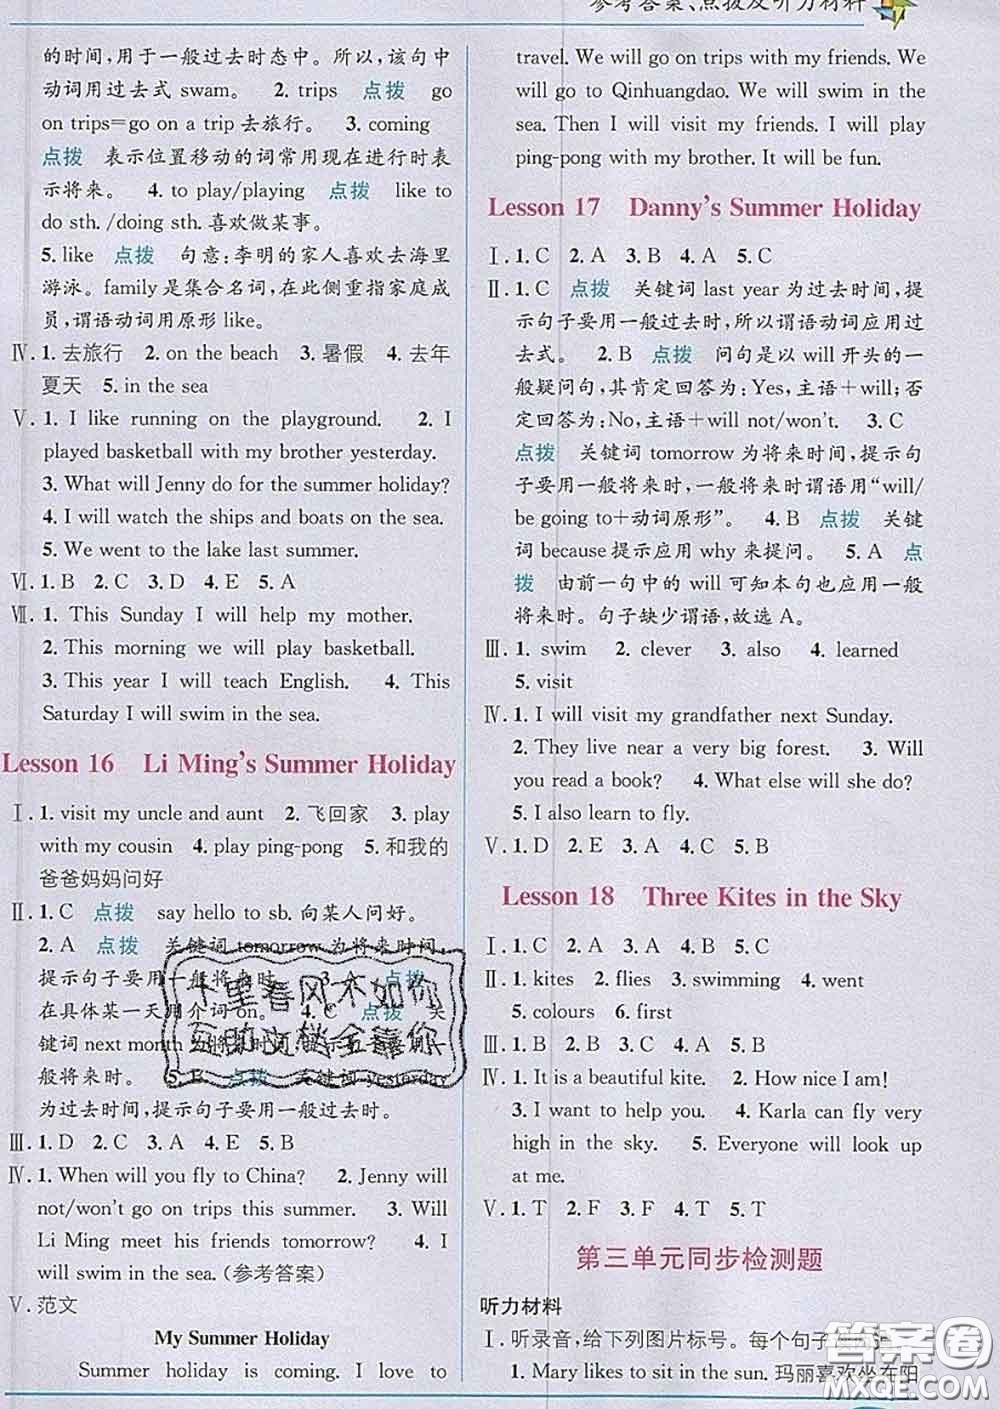 参考答案、点拨及听力材料
的时间,用于一般过去时态中。所以,该句中
动词用过去式 swam。 2. trips 点拨 go
on trips=go on a trip 去旅行。 3. coming
点拨 表示位置移动的词常用现在进行时表
示将来。 4. to play/playing 点拨 like to
do sth. /doing sth. 喜欢做某事。
5. like 点拨 句意:李明的家人喜欢去海里
游泳。family 是集合名词,在此侧重指家庭成
员,谓语动词用原形 like。
Ⅳ. 1. 去旅行 2. on the beach 3. 暑假 4. 去年
夏天 5. in the sea
Ⅴ. 1. I like running on the playground. 2. I
played basketball with my brother yesterday.
3. What will Jenny do for the summer holiday?
4. I will watch the ships and boats on the sea.
5. We went to the lake last summer.
Ⅵ. 1. B 2. C 3. D 4. E 5. A
Ⅶ. 1. This Sunday I will help my mother.
2. This morning we will play basketball.
3. This year I will teach English. 4. This
Saturday I will swim in the sea.
Lesson 16 Li Ming's Summer Holiday
Ⅰ. 1. visit my uncle and aunt 2. 飞回家 3. play
with my cousin 4. play ping-pong 5. 和我的
爸爸妈妈问好
Ⅱ. 1. C 点拨 say hello to sb. 向某人问好。
2. A 点拨 关键词 tomorrow 为将来时间,
提示句子要用一般将来时。 3. A 点拨
在具体某一天用介词 on。 4. C 点拨 关
键词 next month 为将来时间,提示句子要用一
般将来时。 5. B 点拨 关键词 yesterday
为过去时间,提示句子要用一般过去时。
Ⅲ. 1. D 2. C 3. A 4. E 5. B
Ⅳ. 1. When will you fly to China? 2. Jenny will
not/won't go on trips this summer. 3. Will
Li Ming meet his friends tomorrow? 4. I
will swim in the sea. (参考答案)
Ⅴ. 范文
My Summer Holiday
Summer holiday is coming. I love to
travel. We will go on trips with my friends. We
will go to Qinhuangdao. We will swim in the
sea. Then I will visit my friends. I will play
ping-pong with my brother. It will be fun.
Lesson 17 Danny's Summer Holiday
Ⅰ. 1. C 2. A 3. B 4. A 5. C
Ⅱ. 1. C 点拨 关键词 last year 为过去时间,提
示句子要用一般过去时,所以谓语动词应用过
去式。 2. B 点拨 问句是以 will 开头的一
般疑问句,其肯定回答为:Yes,主语+will;否
定回答为:No,主语+will not/won't. 3. C
点拨 关键词 tomorrow 为将来时间,提示句
子要用一般将来时,一般将来时谓语用“will/
be going to+动词原形”。 4. B 点拨 关键
词 because 提示应用 why 来提问。 5. A 点
拨 由前一句中的 will 可知本句也应用一般
将来时。句子缺少谓语,故选 A。
Ⅲ. 1. swim 2. clever 3. also 4. learned
5. visit
Ⅳ. 1. I will visit my grandfather next Sunday.
2. They live near a very big forest. 3. Will
you read a book? 4. What else will she do?
5. I also learn to fly.
Ⅴ. 1. D 2. E 3. A 4. C 5. B
Lesson 18 Three Kites in the Sky
Ⅰ. 1. C 2. A 3. A 4. B 5. C
Ⅱ. 1. kites 2. flies 3. swimming 4. went
5. colours 6. first
Ⅲ. 1. B 2. B 3. A 4. C 5. B
Ⅳ. 1. It is a beautiful kite. 2. How nice I am!
3. I want to help you. 4. Karla can fly very
high in the sky. 5. Everyone will look up
at me.
Ⅴ. 1. T 2. F 3. F 4. T 5. T
第三单元同步检测题
听力材料
Ⅰ. 听录音,给下列图片标号。每个句子
1. Mary likes to sit in the sun. 玛丽喜欢坐在阳
卜里春风不如你
互助文档全靠你
答案圈
MXQE.COM